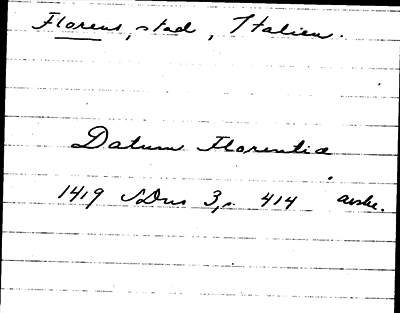 Florens, stad, Italien.
Datum Florentia
1419 SDns 3, s. 414 avskr.